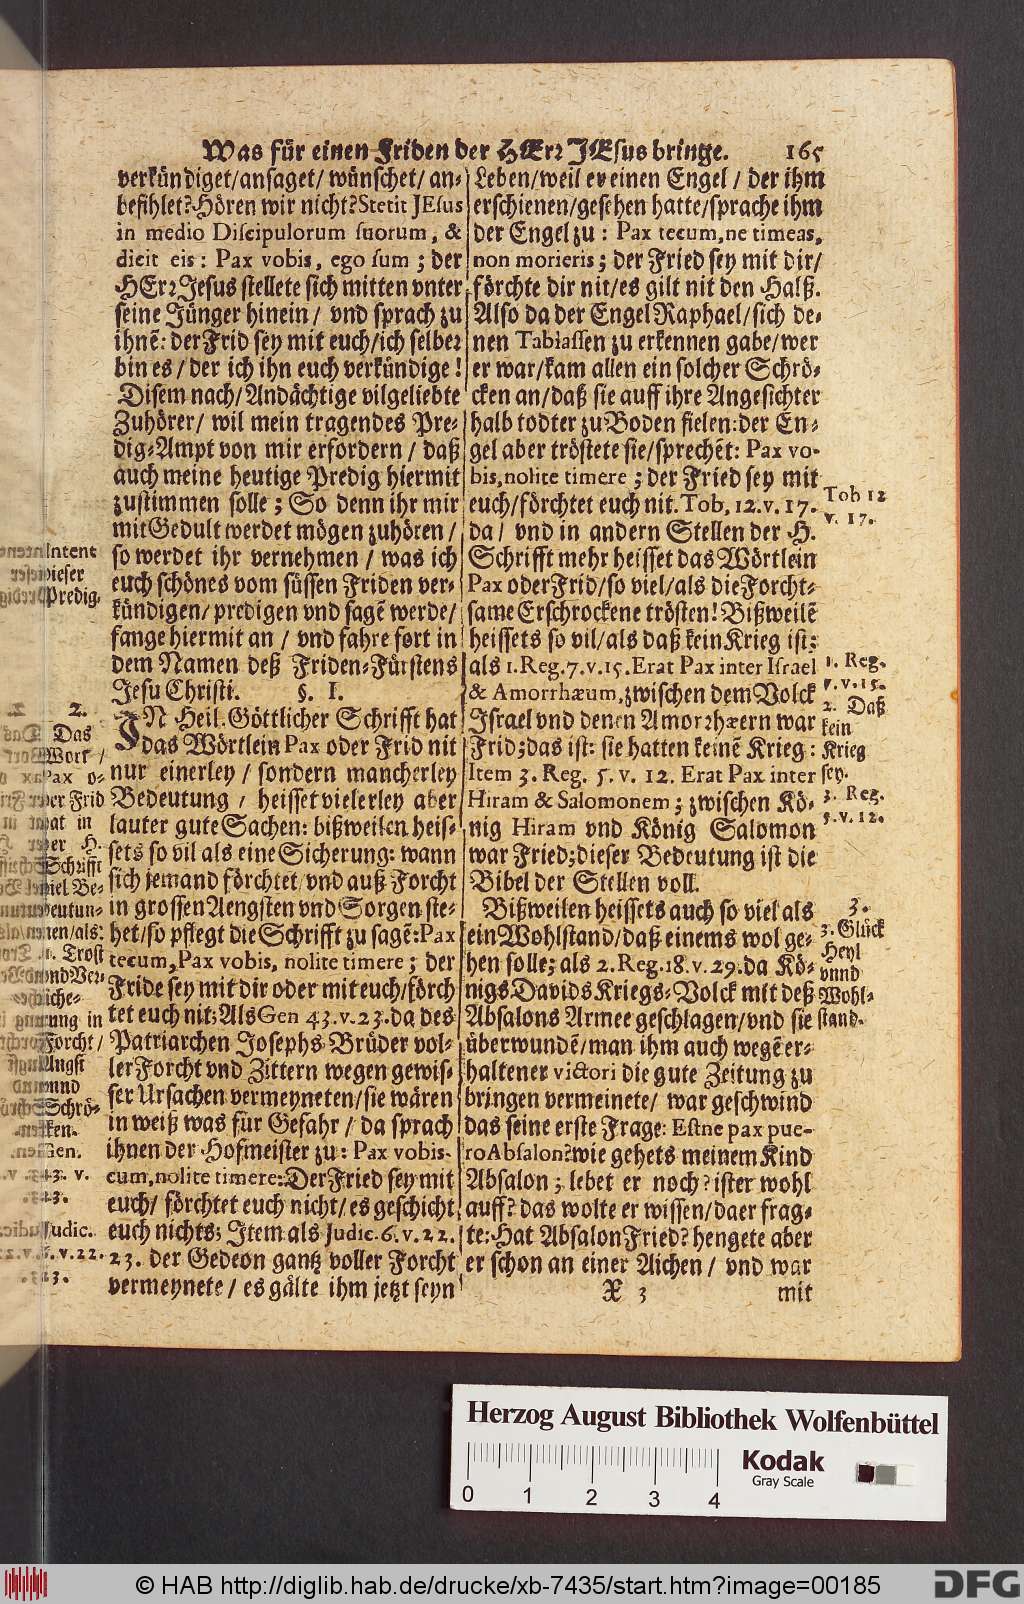 Was für einen Friden der HErr JEsus bringe. 165
verkündiget/ansaget/ wünschet/ an-
befihlet? Hören wir nicht? Stetit JEsus
in medio Discipulorum suorum, &
dicit eis: Pax vobis, ego sum; der
HErr Jesus stellete sich mitten vnter
seine Jünger hinein/ vnd sprach zu
ihnē: der Frid sey mit euch/ich selber
bin es/ der ich ihn euch verkündige!
Disem nach/ Andächtige vilgeliebte
Zuhörer/ wil mein tragendes Pre-
dig-Ampt von mir erfordern/ daß
auch meine heutige Predig hiermit
zustimmen solle; So denn ihr mir
mit Gedult werdet mögen zuhören/
so werdet ihr vernehmen/ was ich
euch schönes vom süssen Friden ver-
kündigen/ predigen vnd sagē werde/
fange hiermit an/ vnd fahre fort in
dem Namen deß Friden-Fürstens
Jesu Christi. §. I.
IN Heil. Göttlicher Schrifft hat
das Wörtlein Pax oder Frid nit
nur einerley/ sondern mancherley
Bedeutung/ heisset vielerley aber
lauter gute Sachen: bißweilen heis-
sets so vil als eine Sicherung: wann
sich jemand förchtet/vnd auß Forcht
in grossen Aengsten vnd Sorgen ste-
het/so pflegt die Schrifft zu sagē: Pax
tecum, Pax vobis, nolite timere; der
Fride sey mit dir oder mit euch/förch
tet euch nit; Als Gen 43. v. 23. da des
Patriarchen Josephs Brüder vol-
ler Forcht vnd Zittern wegen gewis-
ser Ursachen vermeyneten/sie wären
in weiß was für Gefahr/ da sprach
ihnen der Hofmeister zu: Pax vobis-
cum, nolite timere: Der Fried sey mit
euch/ förchtet euch nicht/es geschicht
euch nichts; Item als Judic. 6. v. 22.
23. der Gedeon gantz voller Forcht
vermeynete/ es gälte ihm jetzt seyn
Intent
dieser
Predig.
2.
Das
Wort/
Pax o-
der Frid
hat in
der H.
Schrifft
viel Be-
deutun-
nen/als:
1. Trost
vnd Ver-
siche-
rung in
Forcht/
Angst
vnnd
Schrö-
cken.
Gen.
43. v.
23.
Judic.
6. v. 22.
23.
Leben/weil er einen Engel/ der ihm
erschienen/gesehen hatte/sprache ihm
der Engel zu: Pax tecum, ne timeas,
non morieris; der Fried sey mit dir/
förchte dir nit/es gilt nit den Halß.
Also da der Engel Raphael/sich de-
nen Tobiassen zu erkennen gabe/wer
er war/kam allen ein solcher Schrö-
cken an/daß sie auff ihre Angesichter
halb todter zu Boden fielen: der En-
gel aber tröstete sie/sprechēt: Pax vo-
bis, nolite timere; der Fried sey mit
euch/förchtet euch nit. Tob, 12. v. 17.
da/ vnd in andern Stellen der H.
Schrifft mehr heisset das Wörtlein
Pax oder Frid/so viel/als die Forcht-
same Erschrockene trösten! Bißweilē
heissets so vil/als daß kein Krieg ist;
als 1. Reg. 7. v. 15. Erat Pax inter Israel
& Amorrhæum, zwischen dem Volck
Israel vnd denen Amorrhæern war
Frid; das ist: sie hatten keinē Krieg:
Item 3. Reg. 5. v. 12. Erat Pax inter
Hiram & Salomonem; zwischen Kö-
nig Hiram vnd König Salomon
war Fried; dieser Bedeutung ist die
Bibel der Stellen voll.
Bißweilen heissets auch so viel als
ein Wohlstand/daß einems wol ge-
hen solle; als 2. Reg. 18. v. 29. da Kö-
nigs Davids Kriegs-Volck mit deß
Absalons Armee geschlagen/vnd sie
überwundē/man ihm auch wegē er-
haltener victori die gute Zeitung zu
bringen vermeinete/ war geschwind
das seine erste Frage: Estne pax pue-
ro Absalon? wie gehets meinem Kind
Absalon; lebet er noch? ist er wohl
auff? das wolte er wissen/da er frag-
te: Hat Absalon Fried? hengete aber
er schon an einer Aichen/ vnd war
X 3 mit
Tob 12
v. 17.
1. Reg.
7. v. 15.
2. Daß
kein
Krieg
sey.
3. Reg.
5. v. 12.
3.
3. Glück
Heyl
vnnd
Wohl-
stand.
Herzog August Bibliothek Wolfenbüttel
Kodak
Gray Scale
0 1 2 3 4
© HAB http://diglib.hab.de/drucke/xb-7435/start.htm?image=00185
DFG